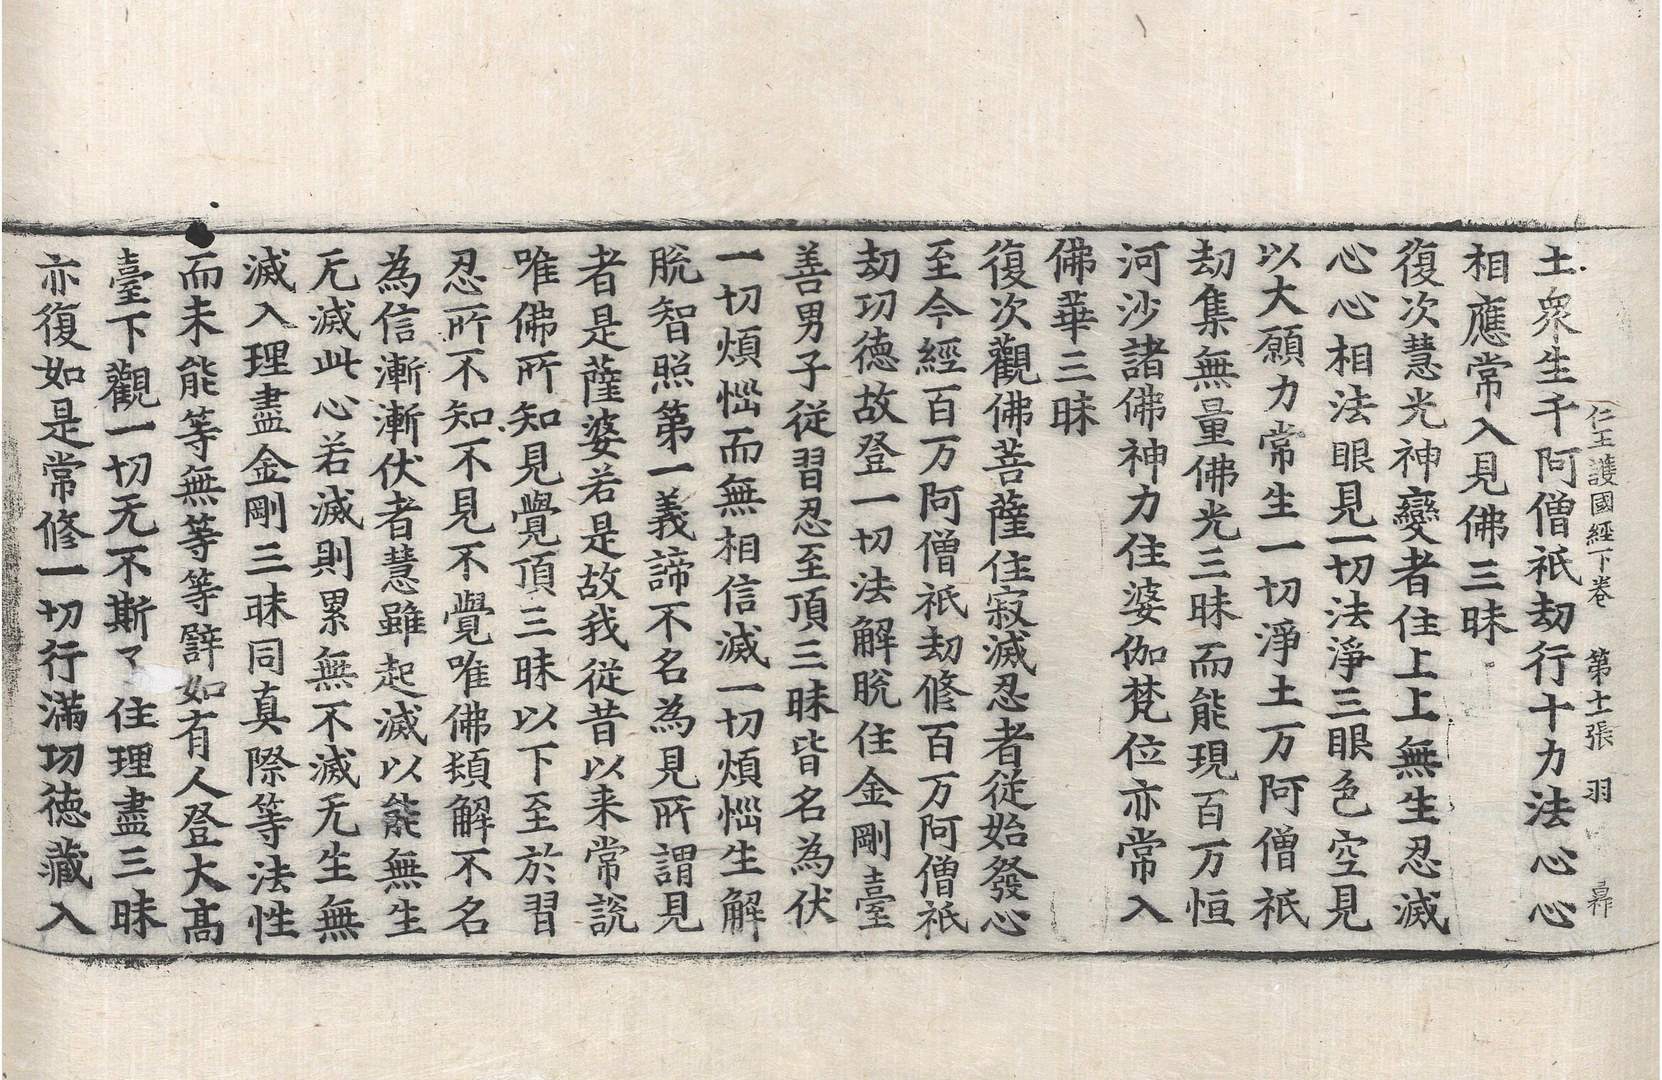 仁王護國經下卷 第十一張 羽
土衆生千阿僧祇劫行十力法心心
相應常入見佛三昧
復次慧光神變者住上上無生忍滅
心心相法眼見一切法淨三眼色空見
以大願力常生一切淨土万阿僧祇
劫集無量佛光三昧而能現百万恒
河沙諸佛神力住婆伽梵位亦常入
佛華三昧
復次觀佛菩薩住寂滅忍者從始發心
至今經百万阿僧祇劫修百万阿僧祇
劫功德故登一切法解脫住金剛臺
善男子從習忍至頂三昧皆名為伏
一切煩惱而無相信滅一切煩惱生解
脫智照第一義諦不名為見所謂見
者是薩婆若是故我從昔以来常說
唯佛所知見覺頂三昧以下至於習
忍所不知不見不覺唯佛頓解不名
為信漸漸伏者慧雖起滅以能無生
无滅此心若滅則累無不滅无生無
滅入理盡金剛三昧同真際等法性
而未能等無等等譬如有人登大高
臺下觀一切无不斯了住理盡三昧
亦復如是常修一切行滿功德藏入